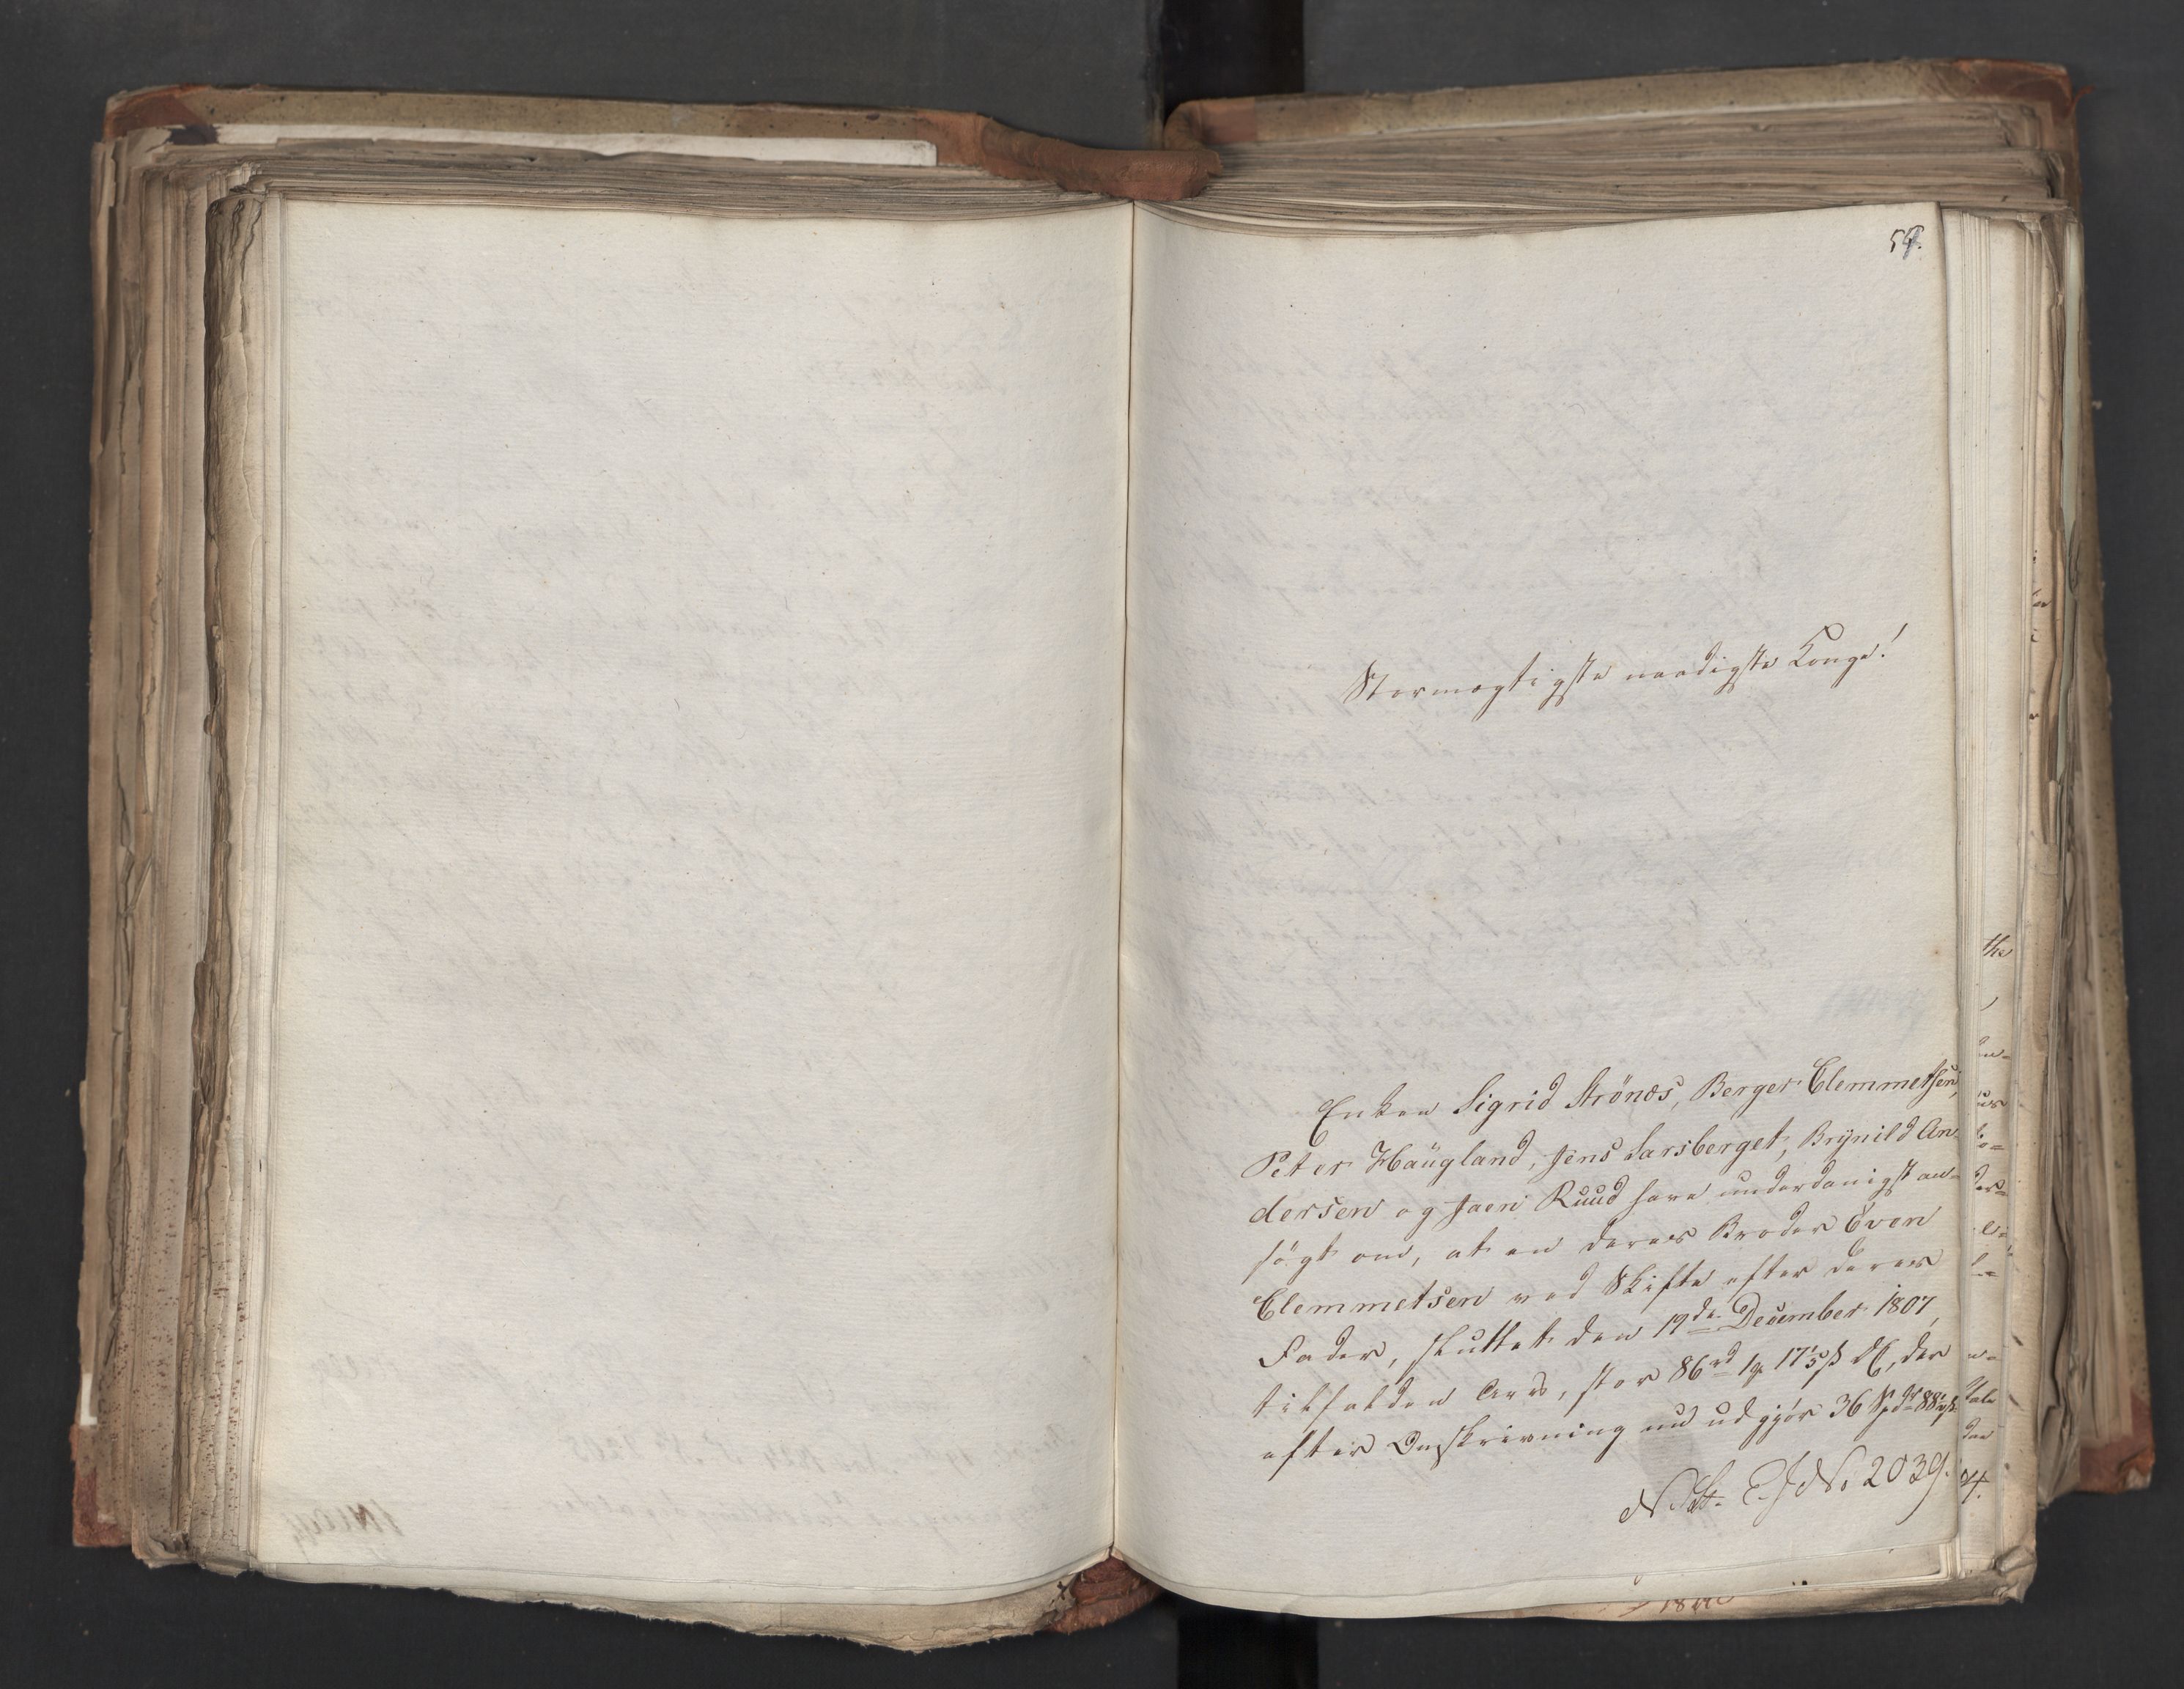 59.
Stormægtigste naadigste Konge!
Enken Sigrid Strönæs, Berger Clemmetsen,
Peter Haugland, Jens Larsberget, Brynild An-
dersen og Jaen Ruud have underdanigst an-
søgt om, at en deres Broder Even
Clemmetsen ved Skifte efter deres
Fader, sluttet den 19de December 1807,
tilfalden Arv, stor 86rd 1 17 1/5 ß DC, der
efter Omskrivning nu udgjør 36 Spdr 88
No 2039.